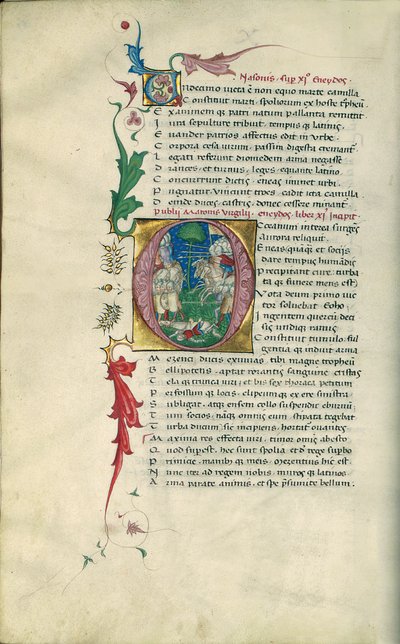 Nasonis. sup XIᵒ Eneydos.
Undecimo victa ē non equo marte camilla
Constituit marti. spoliorum ex hoste tpheū
Exanimem qȝ patri natum pallanta remittit
Iura sepulture tribuit. tempus qȝ latinis.
Evander patrios affectus edit in urbe.
Corpora cesa virum. passim digesta cremant
Legati referunt diomedem arma negasse
Drances. et turnus. leges. equante latino
Concurrunt dictis. eneas iminet urbi.
Pugnatur. vincunt troes. cadit icta camilla
Deinde duces. castris. donec cessere minant
Publii Maronis Virgilii. eneydos. liber XIᵘˢ incipit.
Oceanum interea surgēs
aurora reliquit.
Eneas quāqȝ et socijs
Dare tempus humādis
Precipitant cure. turba
ta qȝ funere mens est
Vota deum primo vic
tor solvebat Eoho
Ingentem quercū deci
sis undiqȝ ramis
Constituit tumulo. ful
gentia qȝ induit arma
Mezenci ducis exuvias. tibi magne tropheū
Bellipotens. aptat rorantis sanguine cristas
Tela qȝ trunca viri. et bis sex thoraca petitum
Perfossum qȝ locis. clipeum qȝ ex ere sinistra
Subligat. atqȝ ensem collo suspendit eburnū
Tum socios. nāqȝ omnis eum stipata tegebat
Turba ducum sic incipiens. hortat ovantes
Maxima res effecta viri. timor omis abesto
Quod supest. hec sunt spolia. et d rege supbo
Primicie. manibȝ qȝ meis. Mezentius hic est.
Nunc iter ad regem nobis. muros qȝ latinos
Arma parate animis. et spe psumite bellum.